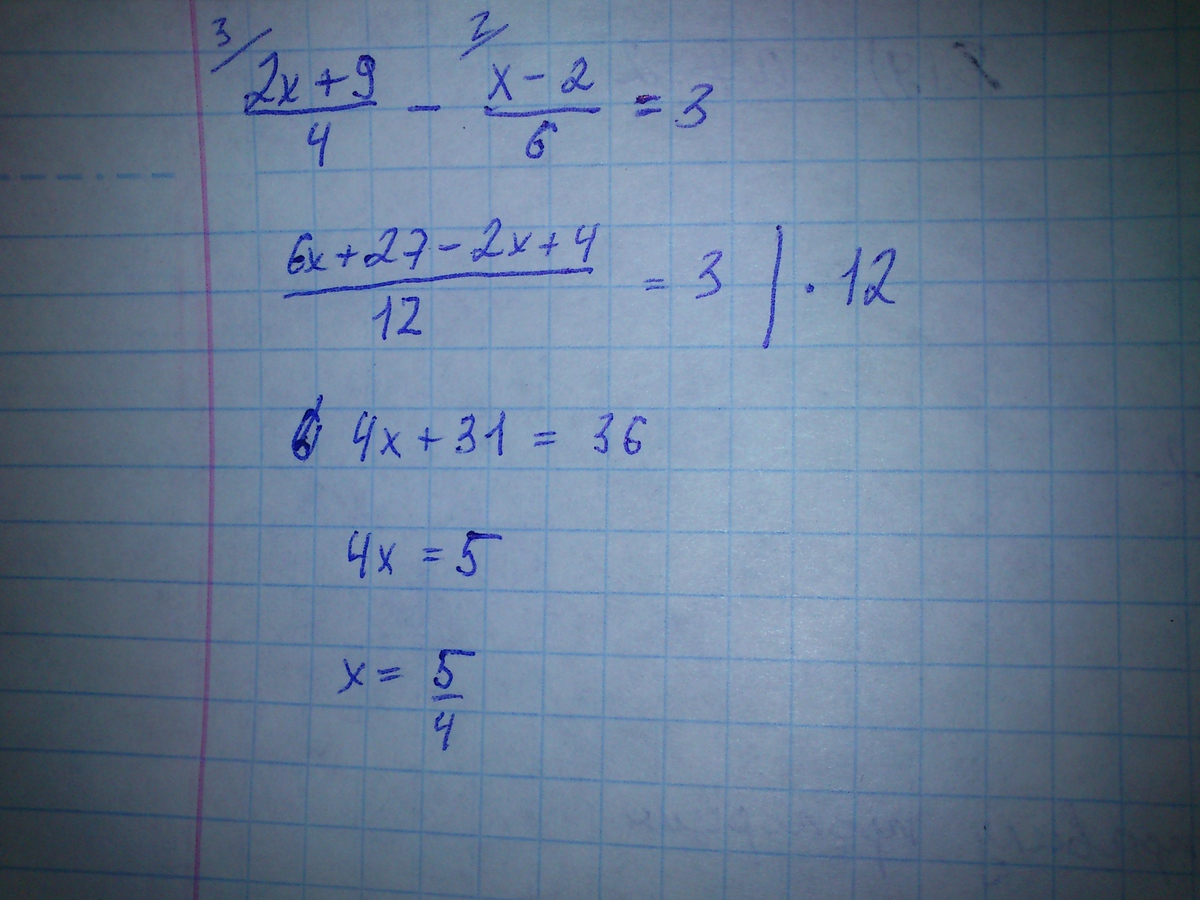 3/ 2/
2x+9 / 4 - x-2 / 6 = 3
6x+27-2x+4 / 12 = 3 | · 12
4x+31 = 36
4x = 5
x = 5/4